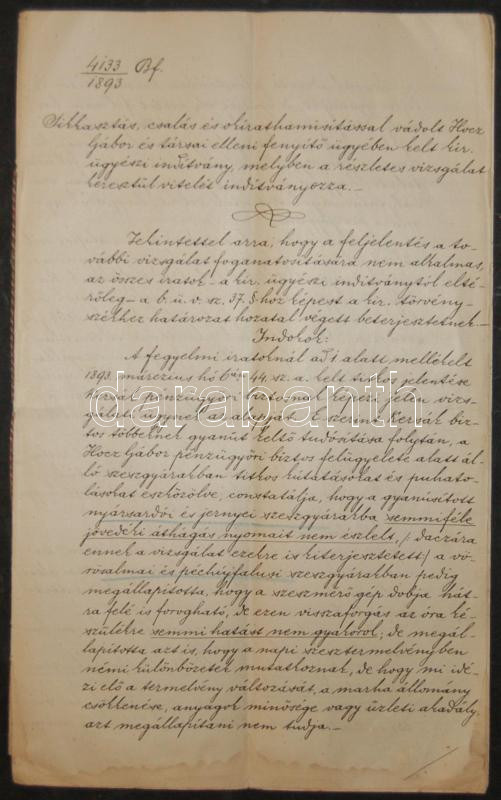 4133 Bf.
1893
Sikkasztás, csalás és okirathamisitással vádolt Hocz
Gábor és társai elleni fenyitő ügyében kelt kir.
ügyészi inditvány, melyben a részletes vizsgálat
keresztülvitelét inditványozza. –
Tekintettel arra, hogy a feljelentés a to-
vábbi vizsgálat foganatositására nem alkalmas,
az összes iratok – a kir. ügyészi inditványtól elté-
rőleg – a b. ü. v. sz. 37. §-hoz képest a kir. törvény-
székhez határozat hozatal végett beterjesztetnek. –
Indokok:
A fegyelmi iratoknál ad 1 alatt mellékelt
1893. márczius hó 6án 44. sz. a. kelt titkos jelentése
pénzügyőri biztosnak képezi jelen vizs-
gálati ügynek az alapját. E szerint biz-
tos többeknek gyanút keltő tudósitása folytán, a
Hocz Gábor pénzügyőri biztos felügyelete alatt ál-
ló szeszgyárakban titkos kutatásokat és puhato-
lásokat eszközölve, constatálja, hogy a gyanúsitott
nyársardói és jernyei szeszgyárakba semmiféle
jövedéki áthágás nyomait nem észlelt, /: daczára
ennek a vizsgálat ezekre is kiterjesztetett :/ a vö-
rösalmai és péchújfalusi szeszgyárakban pedig
megállapitotta, hogy a szeszmérő gép dobja hát-
ra felé is forogható, de ezen visszaforgás az óra ké-
szülékre semmi hatást nem gyakorol; de megál-
lapitotta azt is, hogy a napi szesztermelvényben
némi különbözetek mutatkoznak, de hogy mi idé-
zi elő a termelvény változását, a marha állomány
csökkenése, anyagok minősége vagy üzleti akadály,
azt megállapitani nem tudja. –
darabanth